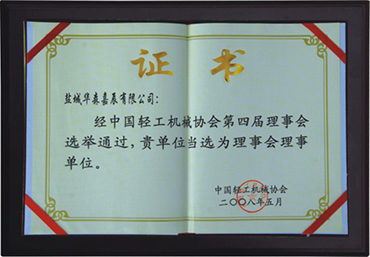 证书
盐城华森嘉辰有限公司：
经中国轻工机械协会第四届理事会
选举通过，贵单位当选为理事会理事
单位。
中国轻工机械协会
二〇〇八年五月